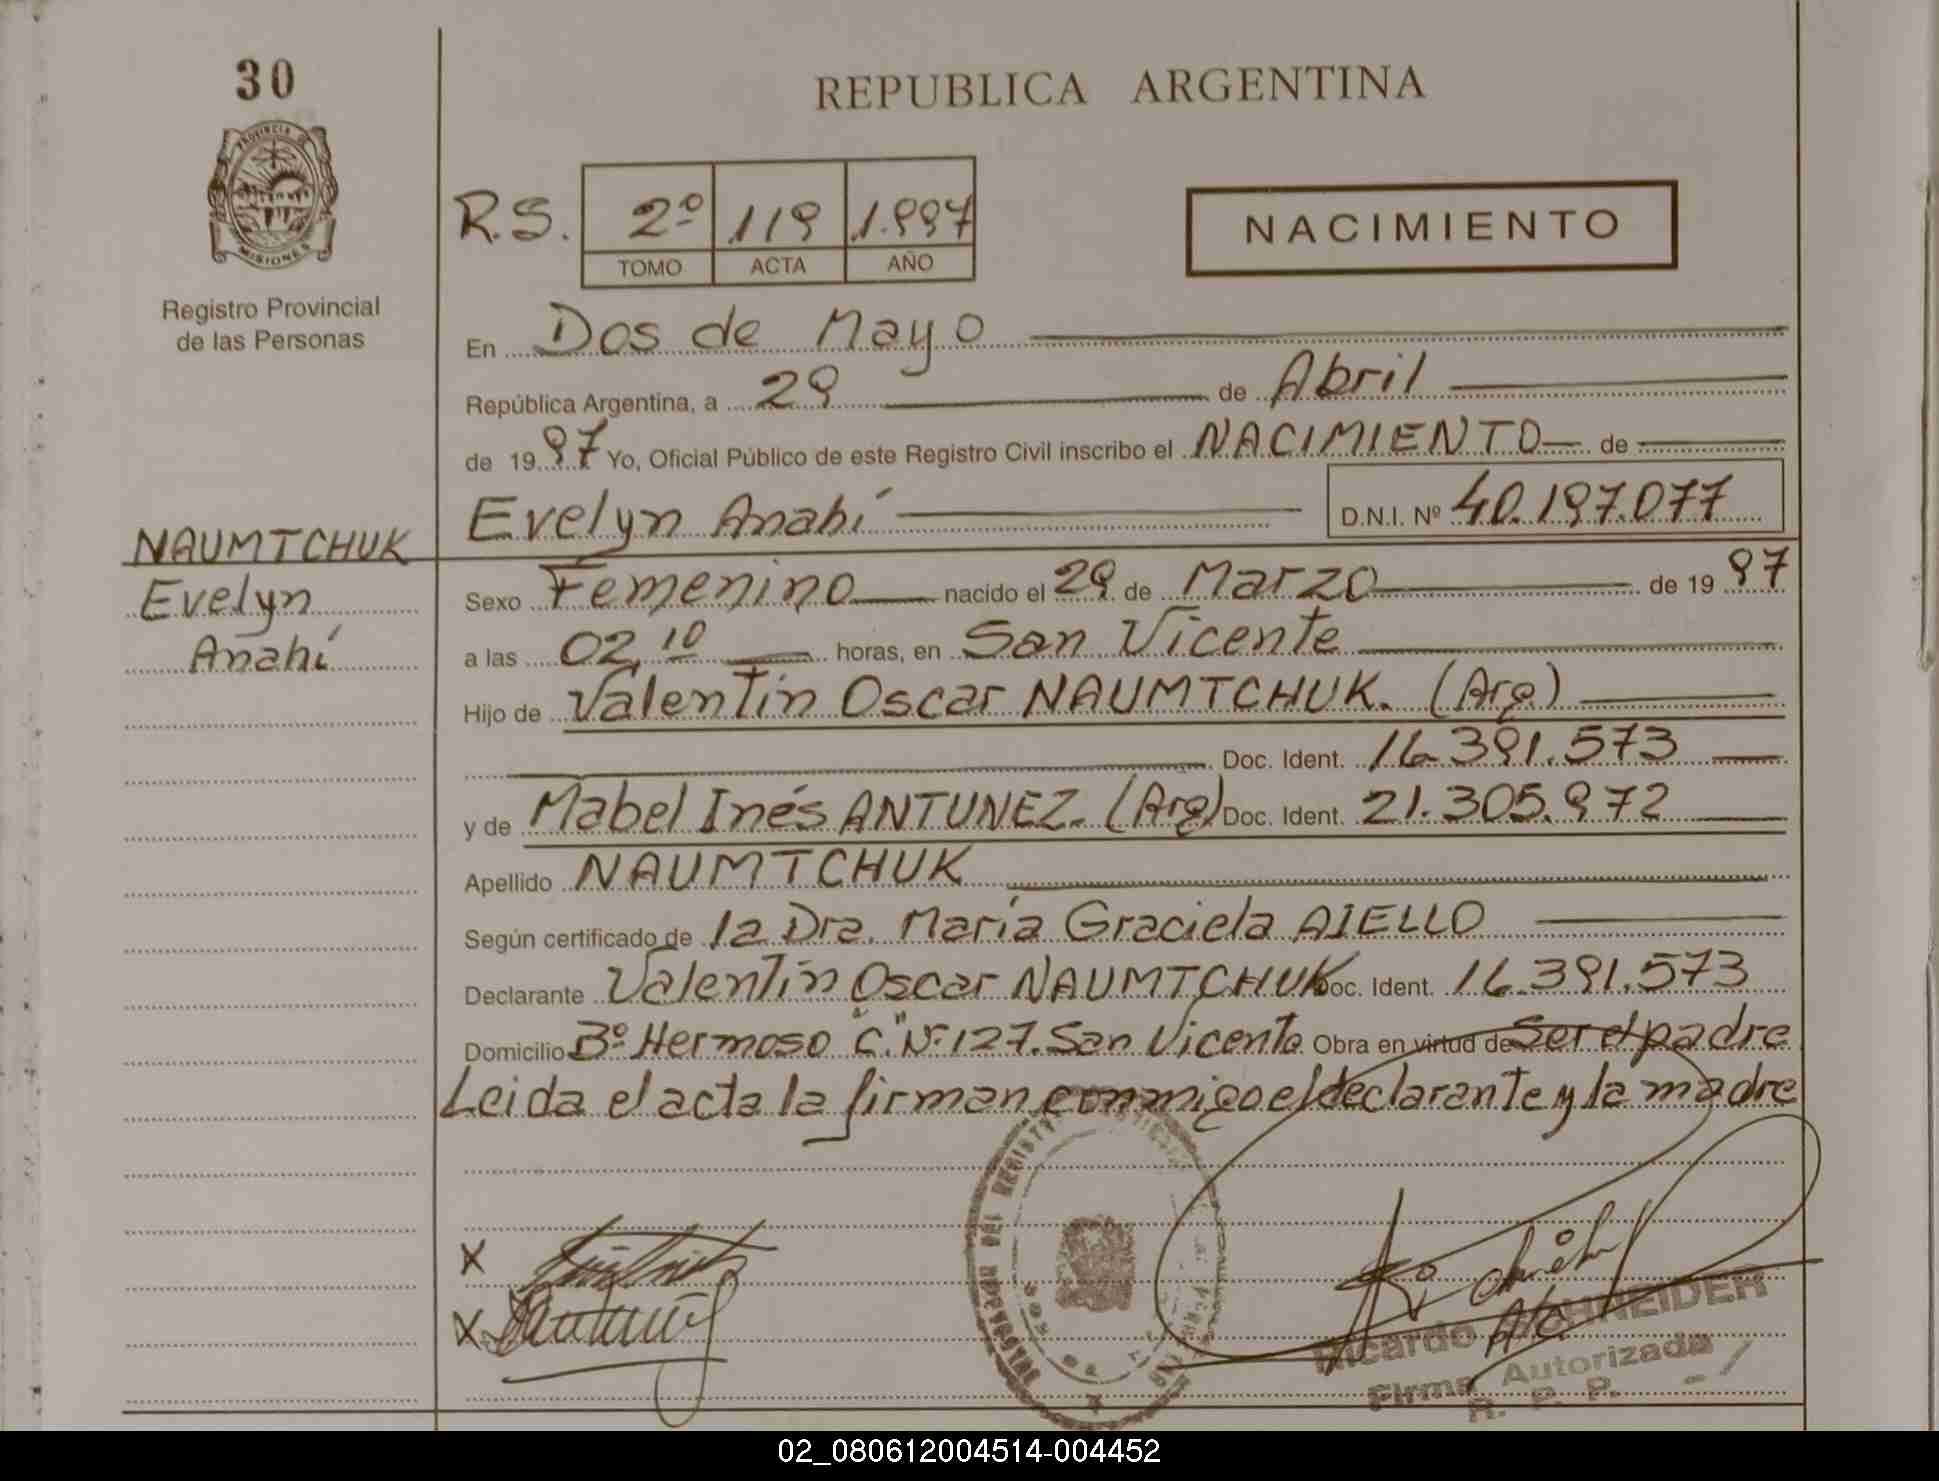 30
PROVINCIA D
MISIONES
Registro Provincial
de las Personas
REPUBLICA ARGENTINA
R.S. 2º 119 1.997
TOMO ACTA AÑO
NACIMIENTO
En Dos de Mayo
República Argentina, a 29 de Abril
de 1997 Yo, Oficial Público de este Registro Civil inscribo el NACIMIENTO de
Evelyn Anahí D.N.I. Nº 40.197.077
NAUMTCHUK
Evelyn
Anahí
Sexo Femenino nacido el 29 de Marzo de 1997
a las 02,10 horas, en San Vicente
Hijo de Valentín Oscar NAUMTCHUK. (Arg)
Doc. Ident. 16.391.573
y de Mabel Inés ANTUNEZ. (Arg) Doc. Ident. 21.305.972
Apellido NAUMTCHUK
Según certificado de la Dra. María Graciela AIELLO
Declarante Valentín Oscar NAUMTCHUK Doc. Ident. 16.391.573
Domicilio Bº Hermoso "C" Nº 127. San Vicente Obra en virtud de Ser el padre
Leida el acta la firman conmigo el declarante y la madre
X
X
Ricardo SCHNEIDER
Firma Autorizada
R. P. P.
02_080612004514-004452